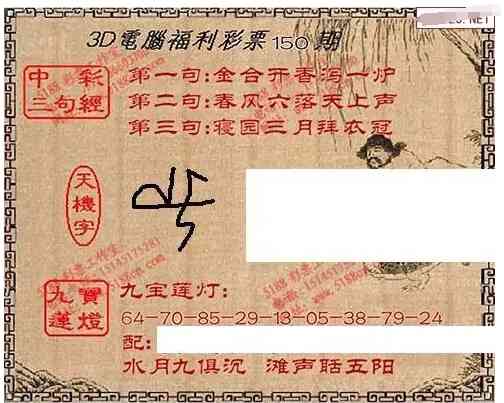 .NET
3D電腦福利彩票150期
中彩
三句經
第一句:金合开香泻一炉
第二句:春风六落天上声
第三句:寝园三月拜衣冠
天機字
九寶
蓮燈
九宝莲灯:
64-70-85-29-13-05-38-79-24
配:
水月九俱沉 滩声聒五阳